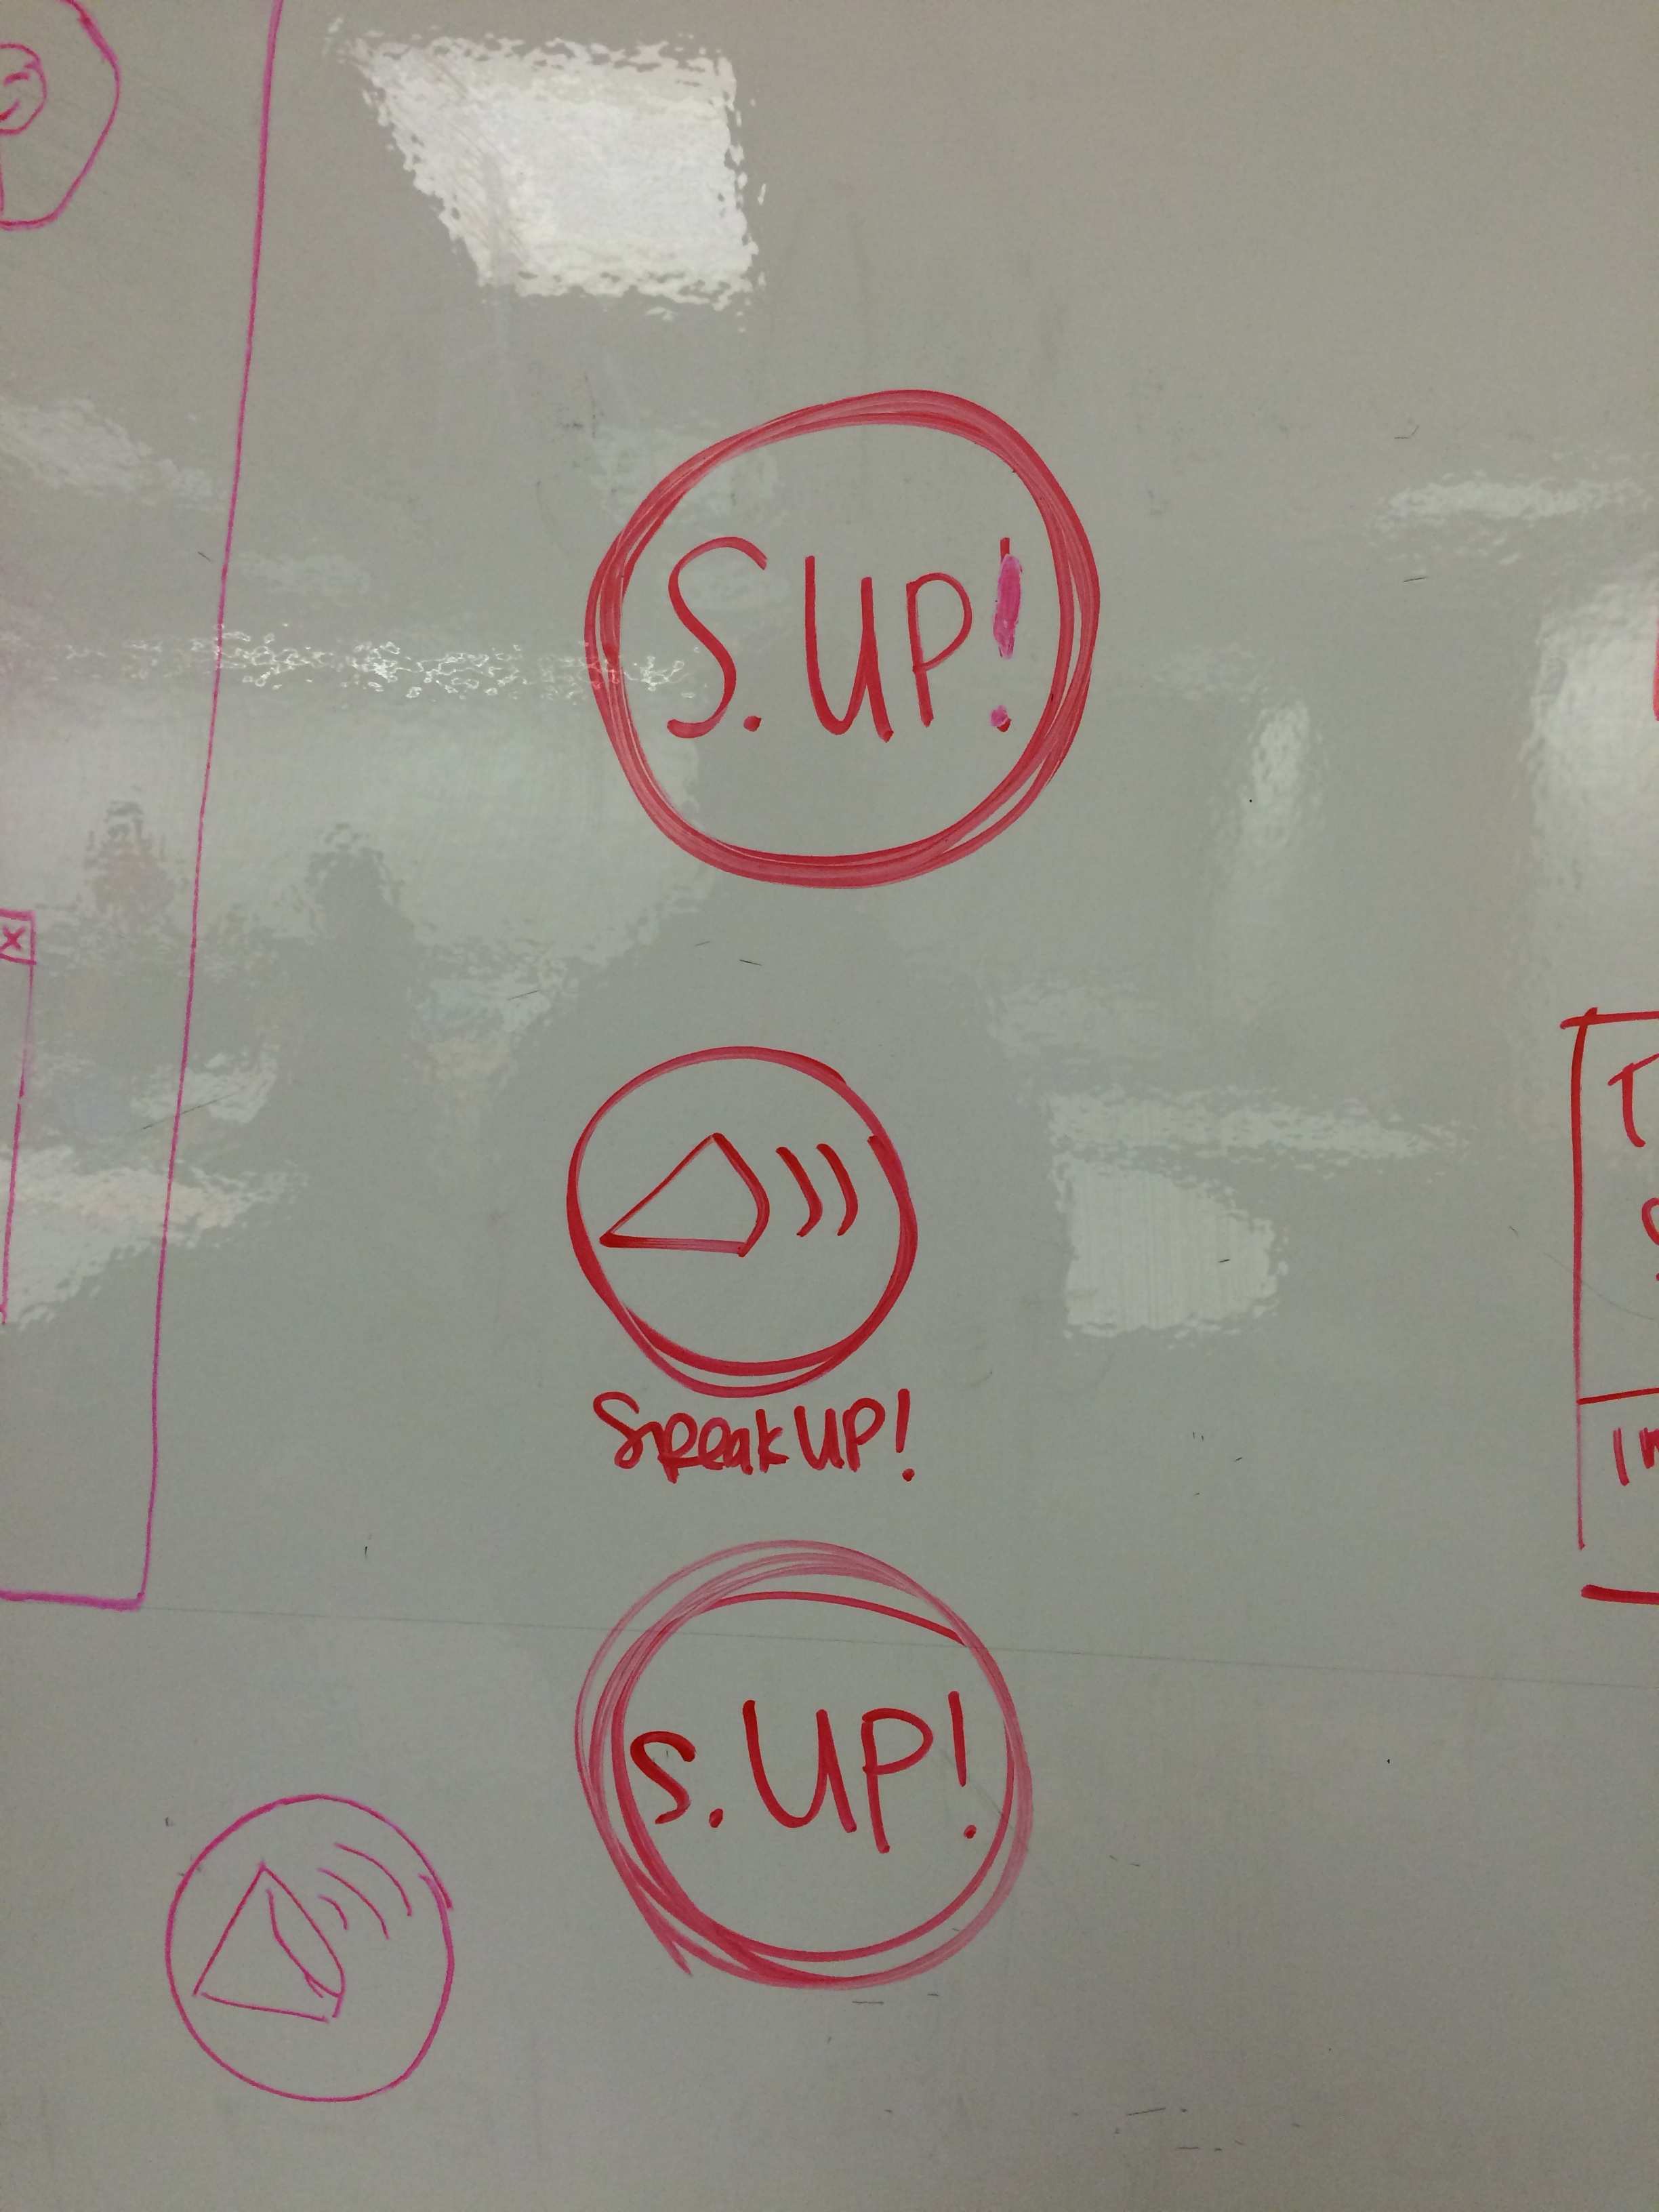 S.UP!
SpeakUP!
s.UP!
x